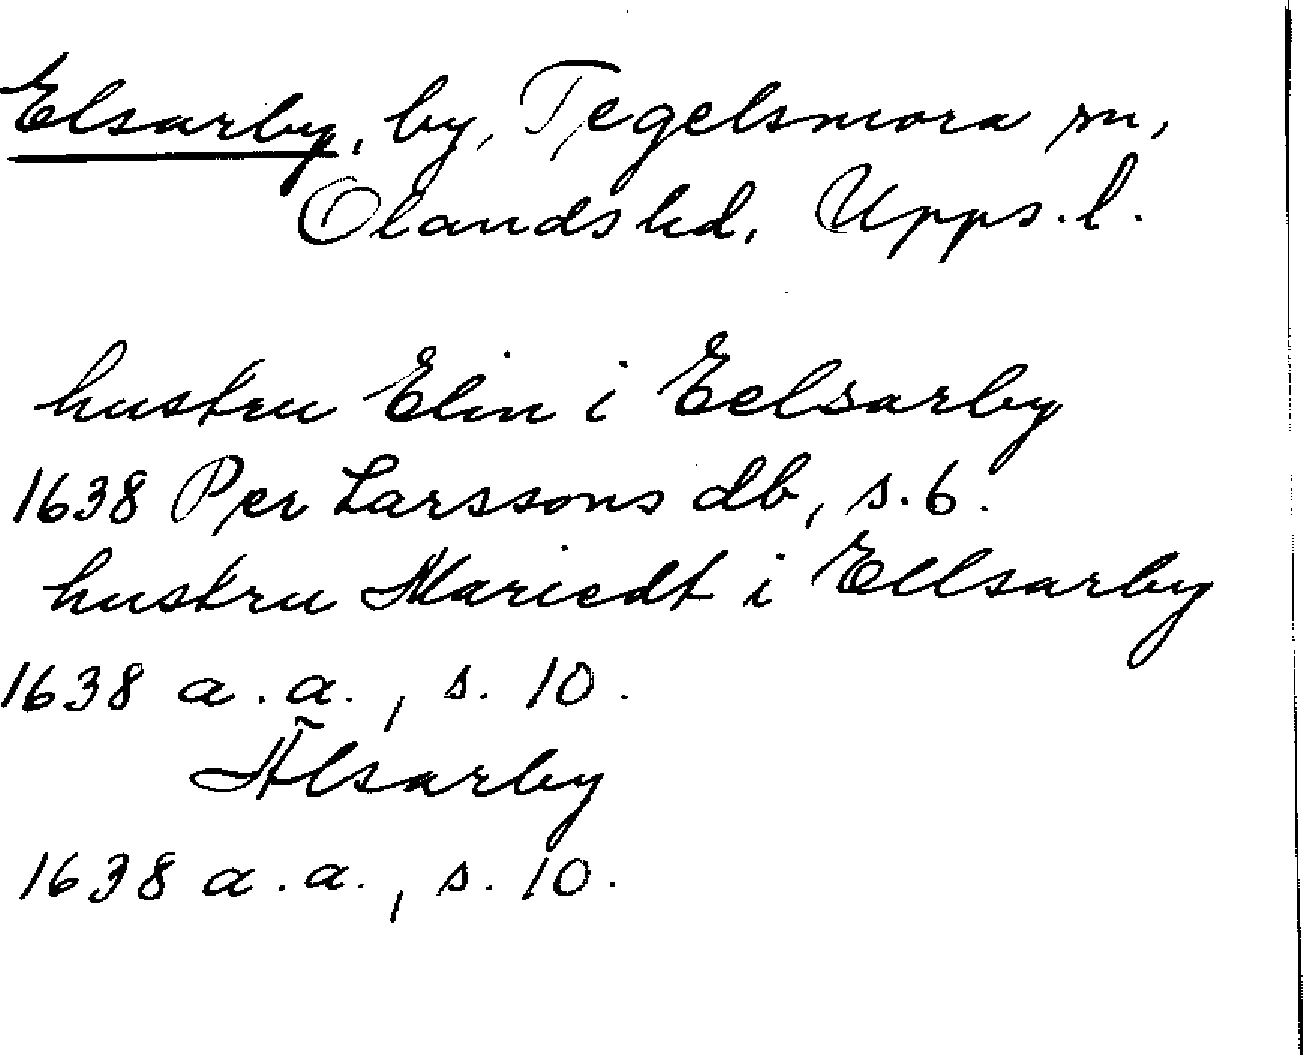 Elsarby, by, Tegelsmora sn,
Olandshd, Upps. l.
hustru Elin i Eelsarby
1638 Per Larssons db, s. 6.
hustru Mariedt i Ellsarby
1638 a.a., s. 10.
Älsarby
1638 a.a., s. 10.